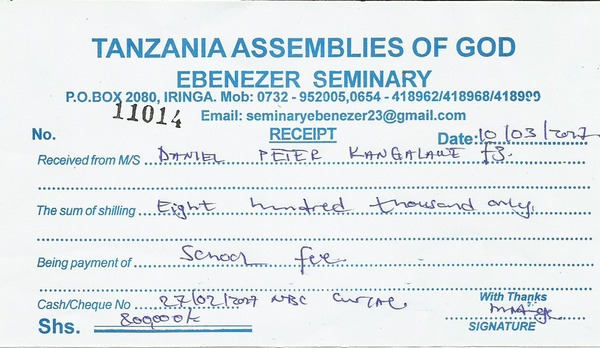 TANZANIA ASSEMBLIES OF GOD
EBENEZER SEMINARY
P.O.BOX 2080, IRINGA. Mob: 0732 - 952005,0654 - 418962/418968/418999
11014 Email: seminaryebenezer23@gmail.com
No. RECEIPT Date: 10/03/2017
Received from M/S DANIEL PETER KANGALAWE f3.
The sum of shilling Eight hundred thousand only.
Being payment of School fee
Cash/Cheque No 27/02/2017 NBC With Thanks
Shs. 800000/= SIGNATURE